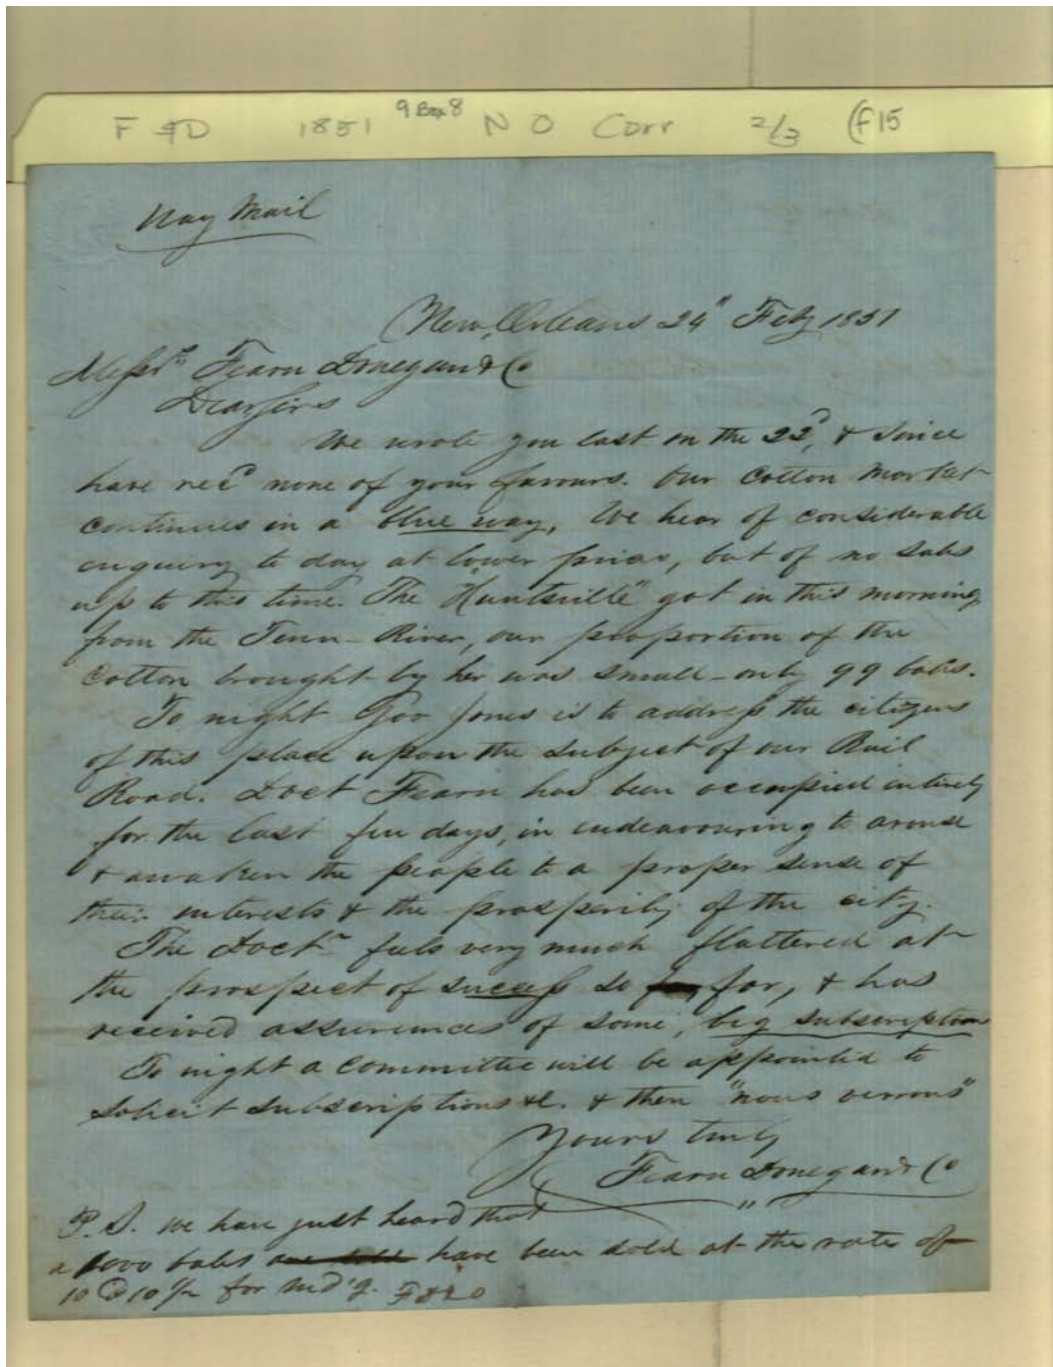 F & D 1851 9 Box 8 N O Corr 2/3 (f15
Way Mail
New Orleans 24" Feby 1851
Messrs Fearn Donegan & Co
Dear Sirs
We wrote you last on the 22d, & since
have recd none of your favours. Our Cotton Market
continues in a blue way, We hear of considerable
enquiry to day at lower prices, but of no sales
up to this time. The "Huntsville" got in this morning
from the Tenn River, our proportion of the
Cotton brought by her was small - only 99 bales.
To night Gov Jones is to address the citizens
of this place upon the subject of our Rail
Road. Doct Fearn has been occupied entirely
for the last few days, in endeavouring to arouse
& awaken the people to a proper sense of
their interests & the prosperity of the city.
The Doctr feels very much flattered at
the prospect of success so far, & has
received assurances of some, big subscription
To night a committee will be appointed to
solicit subscriptions &c. & then "nous verrons"
Yours truly
Fearn Donegan & Co
P.S. we have just heard that
a 1000 bales have been sold at the rate of
10 @ 10 1/2 for Md'g. F D & Co